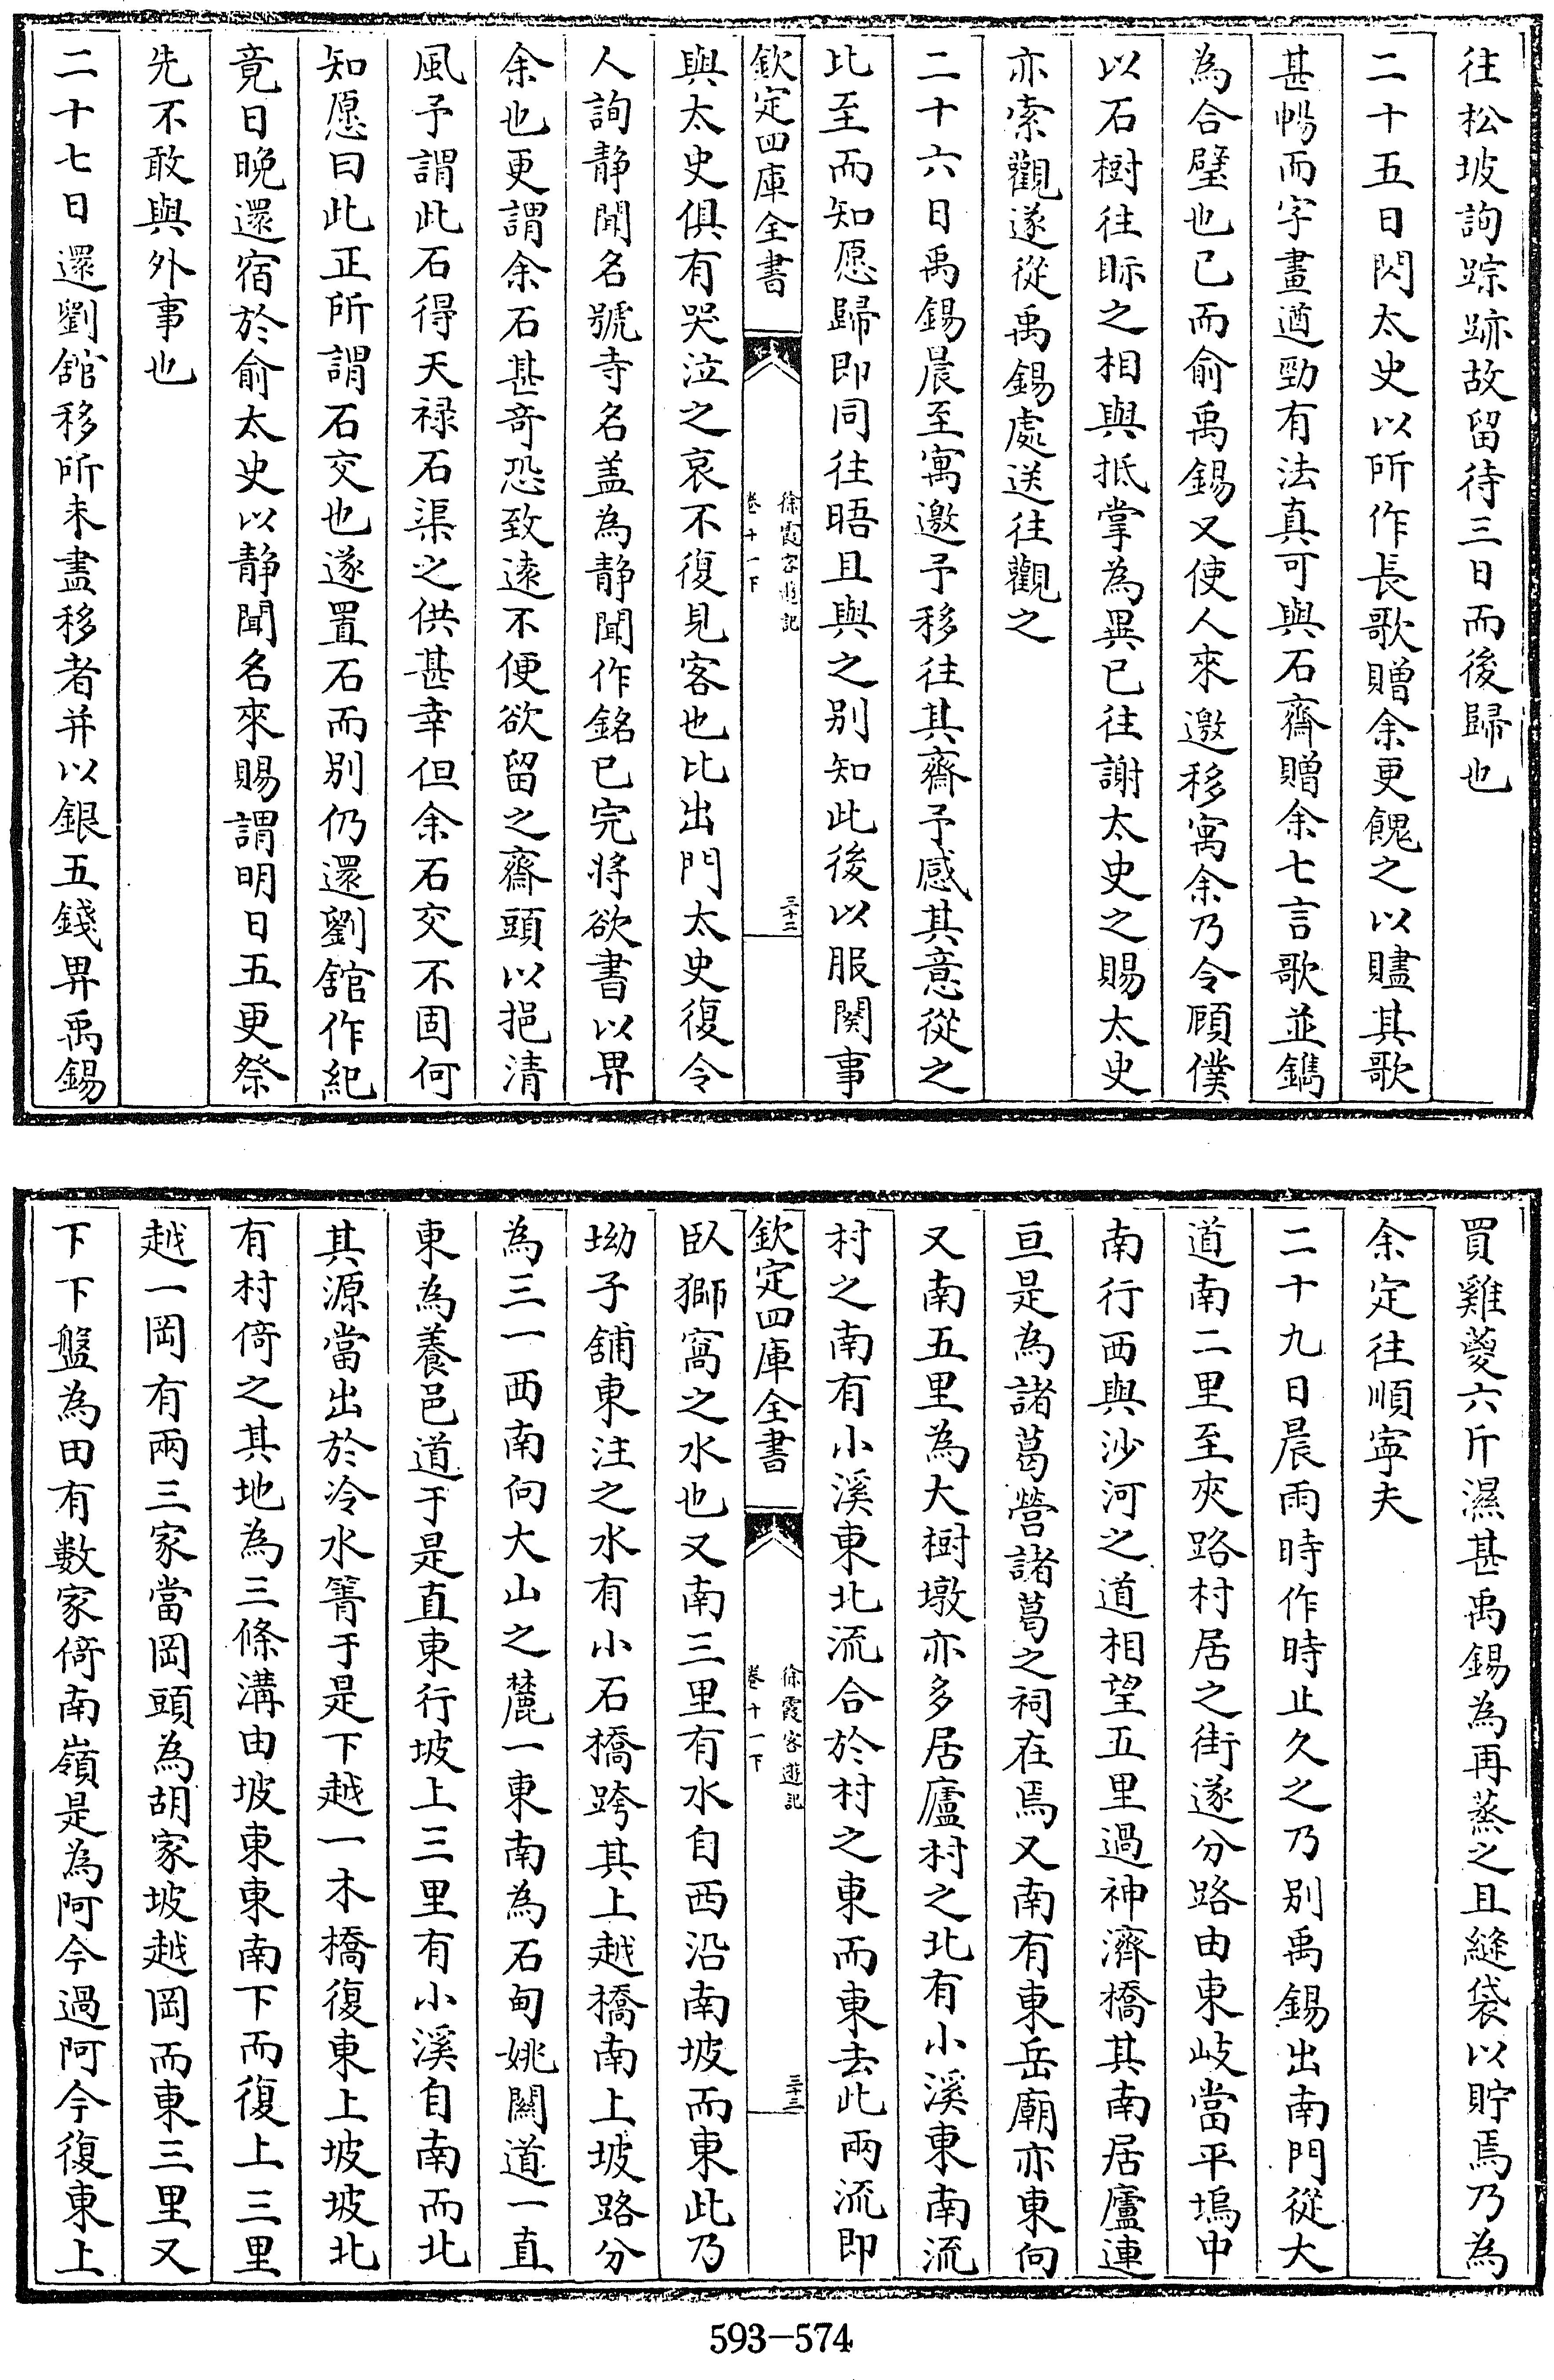 往松坡詢踪跡故留待三日而後歸也
二十五日閃太史以所作長歌贈余更餽之以贐其歌
甚暢而字畫遒勁有法真可與石齋贈余七言歌並鐫
為合璧也已而俞禹錫又使人來邀移寓余乃令顧僕
以石樹往眎之相與抵掌為異已往謝太史之賜太史
亦索觀遂從禹錫處送往觀之
二十六日禹錫晨至寓邀予移往其齋予感其意從之
比至而知愿歸即同往晤且與之别知此後以服闋事
欽定四庫全書
徐霞客遊記
卷十一下
三十二
與太史俱有哭泣之哀不復見客也比出門太史復令
人詢静聞名號寺名盖為静聞作銘已完将欲書以畀
余也更謂余石甚竒恐致遠不便欲留之齋頭以挹清
風予謂此石得天禄石渠之供甚幸但余石交不固何
知愿曰此正所謂石交也遂置石而别仍還劉舘作紀
竟日晚還宿於俞太史以静聞名來賜謂明日五更祭
先不敢與外事也
二十七日還劉舘移所未盡移者并以銀五錢畀禹錫
買雞㚇六斤濕甚禹錫為再蒸之且縫袋以貯焉乃為
余定往順寧夫
二十九日晨雨時作時止久之乃别禹錫出南門從大
道南二里至夾路村居之街遂分路由東岐當平塢中
南行西與沙河之道相望五里過神濟橋其南居廬連
亘是為諸葛營諸葛之祠在焉又南有東岳廟亦東向
又南五里為大樹墩亦多居廬村之北有小溪東南流
村之南有小溪東北流合於村之東而東去此兩流即
欽定四庫全書
徐霞客遊記
卷十一下
三十三
臥獅窩之水也又南三里有水自西沿南坡而東此乃
坳子舖東注之水有小石橋跨其上越橋南上坡路分
為三一西南向大山之麓一東南為石甸姚關道一直
東為養邑道于是直東行坡上三里有小溪自南而北
其源當出於冷水箐于是下越一木橋復東上坡坡北
有村倚之其地為三條溝由坡東東南下而復上三里
越一岡有兩三家當岡頭為胡家坡越岡而東三里又
下下盤為田有数家倚南嶺是為阿今過阿今復東上
593-574